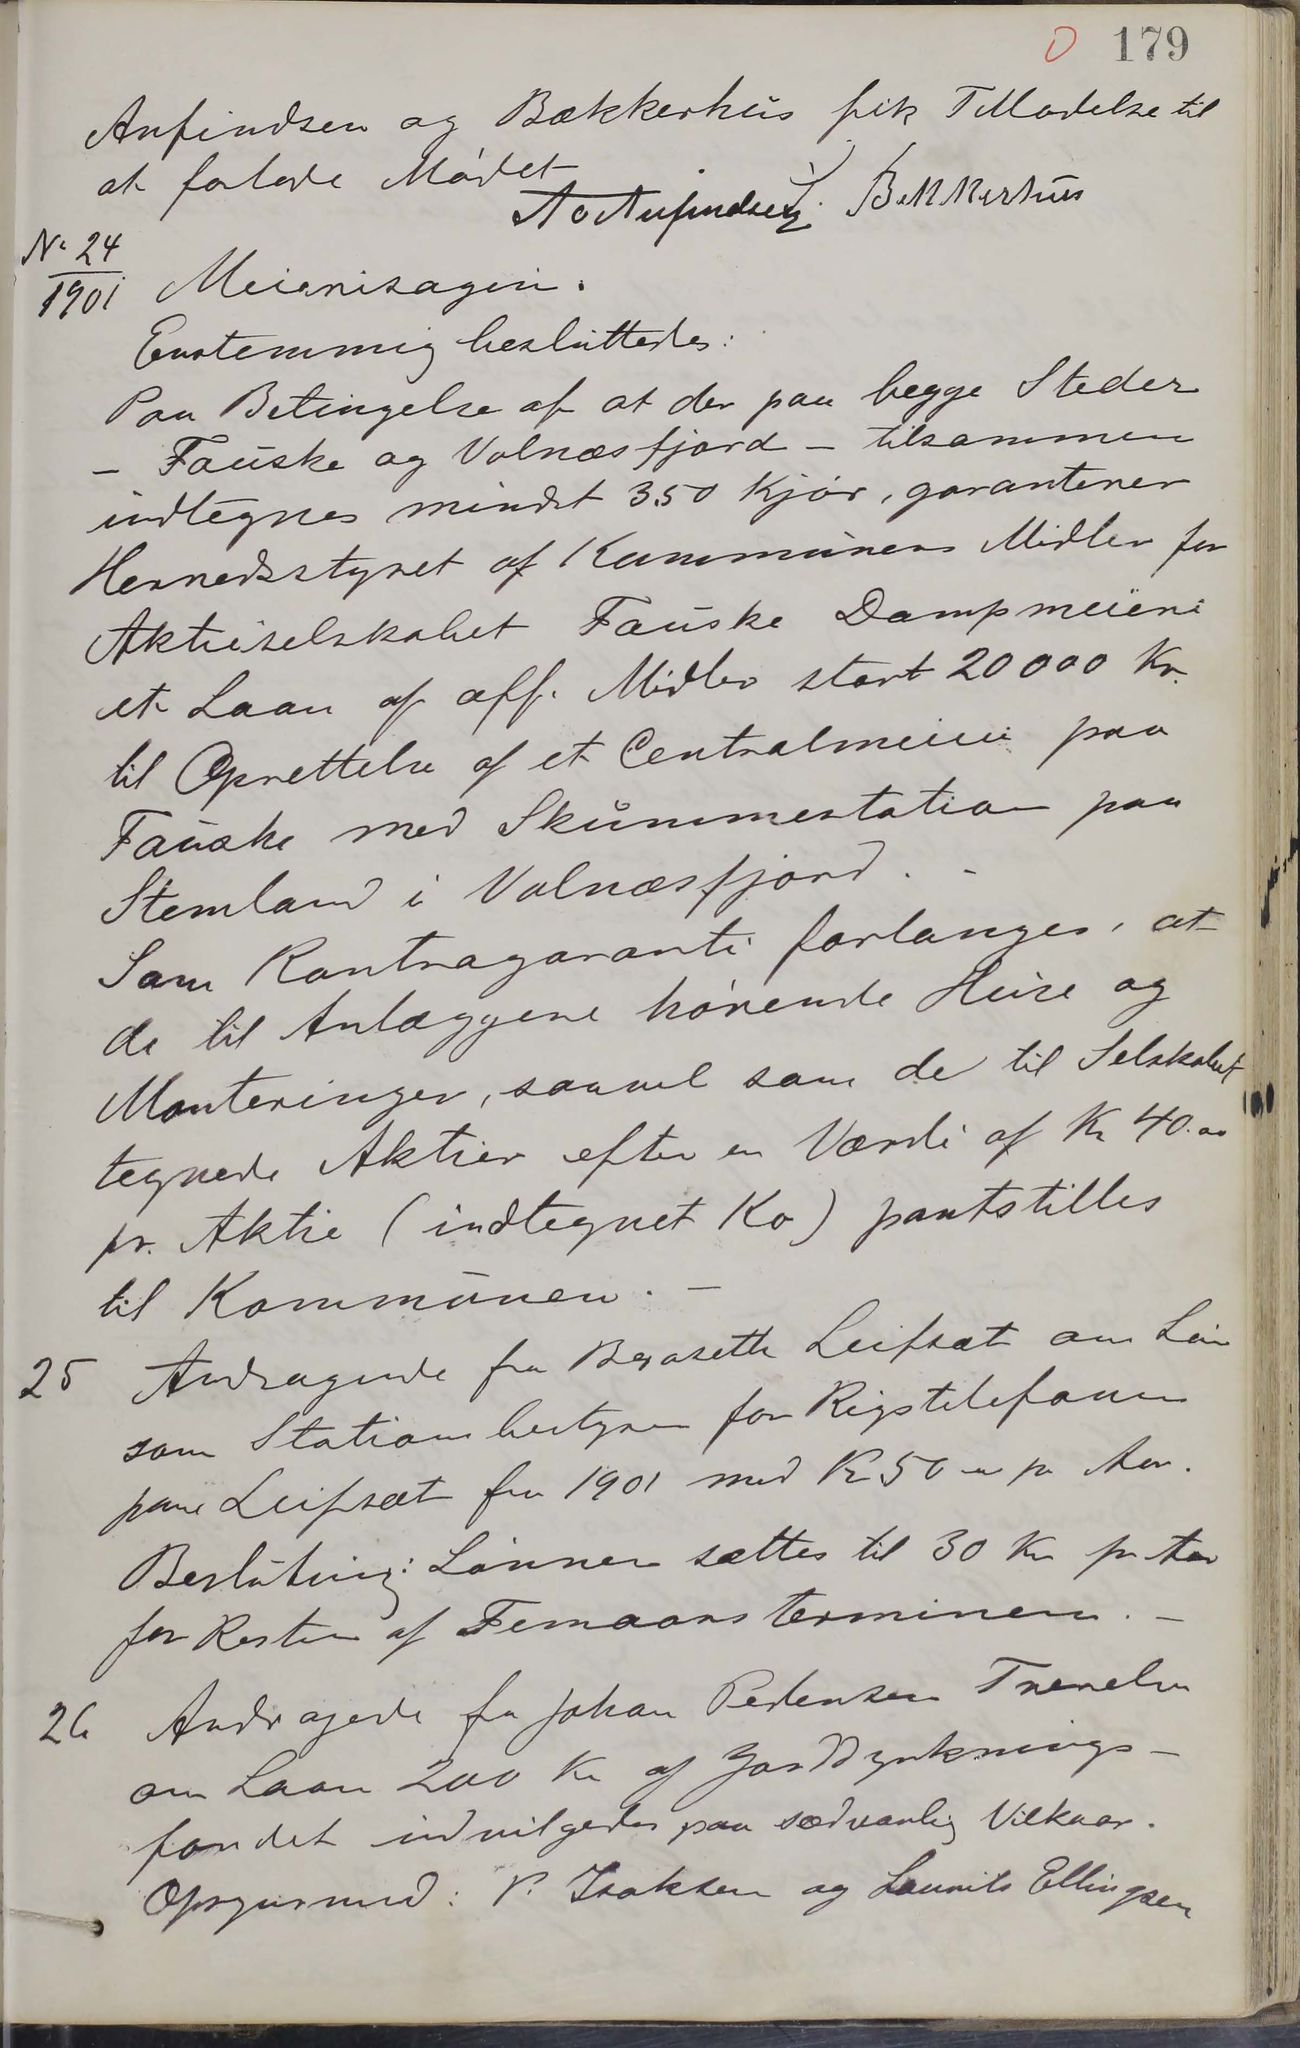 179
Anfindsen og Bækkerhus fik Tilladelse til
at forlade Mødet
A Anfindsen J. Bekkerhus
No 24
1901 Meierisagen.
Enstemmig besluttedes:
Paa Betingelse af at der paa begge Steder
- Fauske og Valnæsfjord - tilsammen
indtegnes mindst 350 Kjør, garanterer
Herredsstyret af Kommunens Midler for
Aktieselskabet Fauske Dampmeieri
et Laan af off. Midler stort 20000 Kr.
til Oprettelse af et Centralmeieri paa
Fauske med Skummestation paa
Stemland i Valnæsfjord. -
Som Kontragaranti forlanges, at
de til Anlæggene hørende Huse og
Monteringer, saavel som de til Selskabet
tegnede Aktier efter en Værdi af Kr 40.00
pr. Aktie (indtegnet Ko) pantstilles
til Kommunen. -
25 Andragende fra Leifsæt om Løn
som Stationsbestyrer for Rigstelefonen
paa Leifsæt fra 1901 med Kr 50 pr Aar.
Beslutning: Lønnen sættes til 30 Kr pr Aar
for Resten af Femaarsterminen. -
26 Andragende fra Johan Pedersen
om Laan 200 Kr af Jorddyrknings-
fondet indvilgedes paa sædvanlig Vilkaar.
Opsynsmænd: P. Isaksen og Laurits Ellingsen